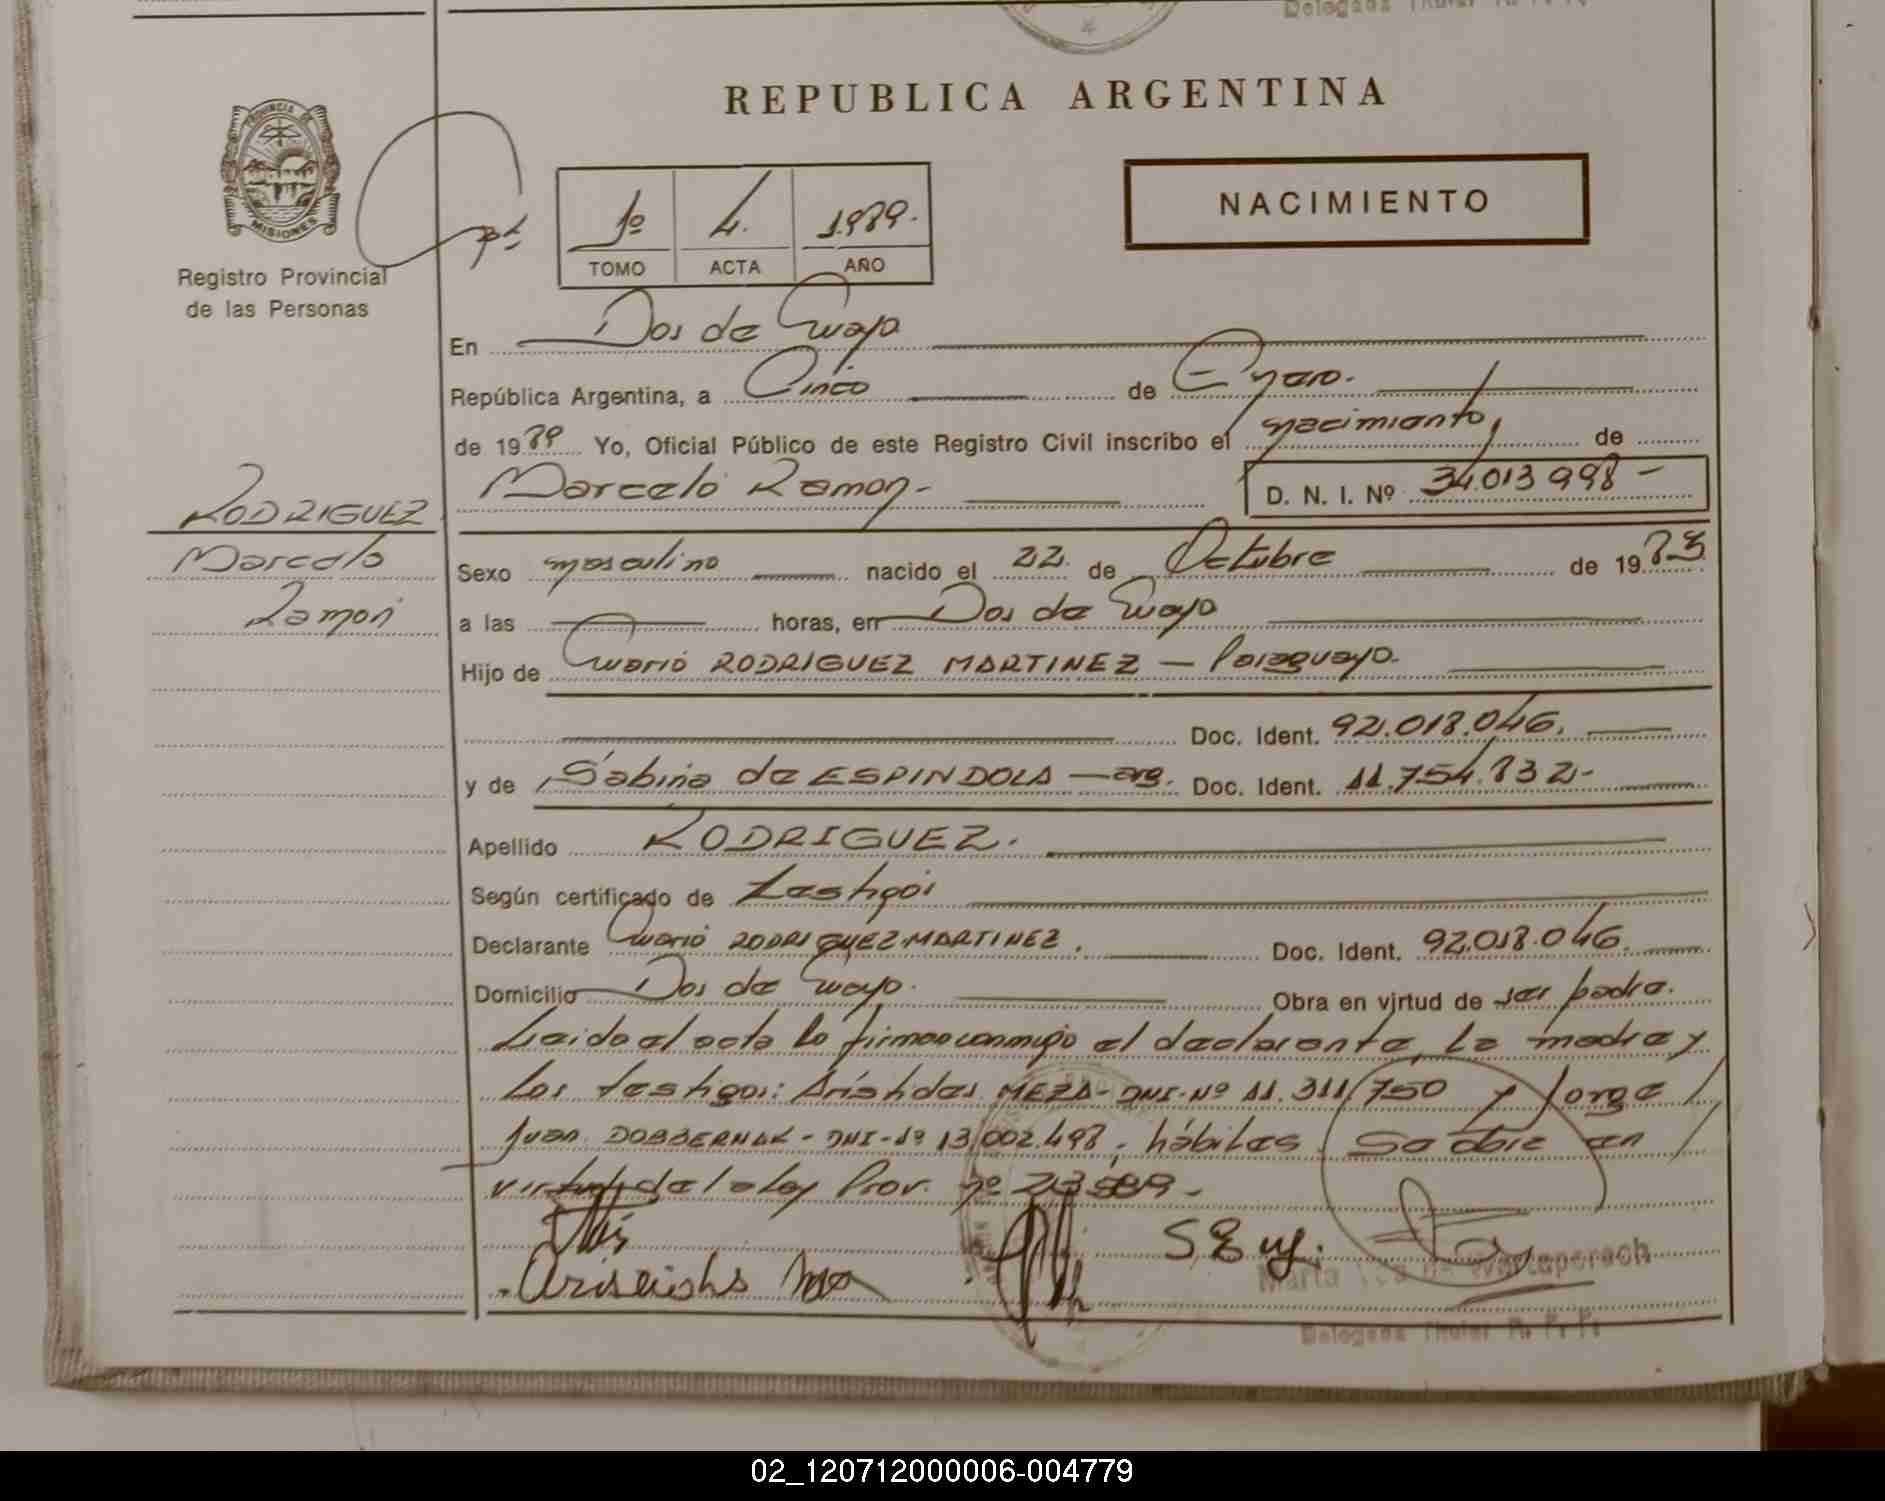 Delegada Titular R. P. P.
REPUBLICA ARGENTINA
PROVINCIA DE
MISIONES
Registro Provincial
de las Personas
NACIMIENTO
1º 4. 1.989.
TOMO ACTA AÑO
En Dos de Mayo
República Argentina, a Cinco de Enero.
de 1989 Yo, Oficial Público de este Registro Civil inscribo el nacimiento, de
Marcelo Ramon.- D. N. I. Nº 34.013.998-
RODRIGUEZ
Marcelo
Ramon
Sexo masculino nacido el 22. de Octubre de 1983
a las horas, en Dos de Mayo
Hijo de Mario RODRIGUEZ MARTINEZ - Paraguayo.
Doc. Ident. 92.018.046.
y de Sabina de ESPINDOLA - arg. Doc. Ident. 11.754.832.-
Apellido RODRIGUEZ.
Según certificado de Testigos
Declarante Mario RODRIGUEZ MARTINEZ. Doc. Ident. 92.018.046.
Domicilio Dos de Mayo. Obra en virtud de ser padre.
Leida el acta la firman conmigo el declarante, la madre y
los testigos: Arístides MEZA- DNI-Nº 11.311.750 y Jorge
Juan DOBBERNAK - DNI-Nº 13.002.498, hábiles. Se abre en
virtud de la ley Prov. nº
S E M.
Delegada Titular R. P. P.
02_120712000006-004779